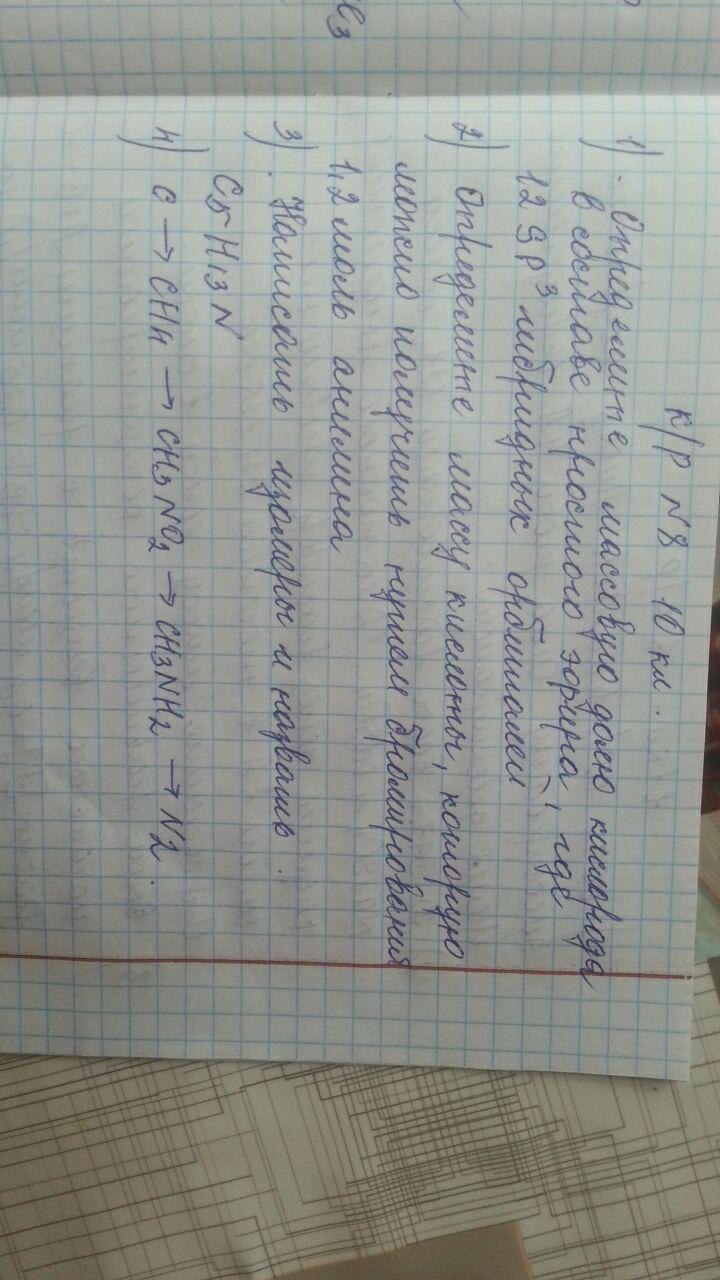 к/р N8 10 кл.
1) Определите массовую долю кислорода
в составе простого эфира, где
12 sp³ гибридных орбиталей
2) Определите массу кислоты, которую
можно получить путем бромирования
1,2 моль анилина
3) Написать изомеры и назвать.
C5H13N
4) C → CH4 → CH3NO2 → CH3NH2 → N2.